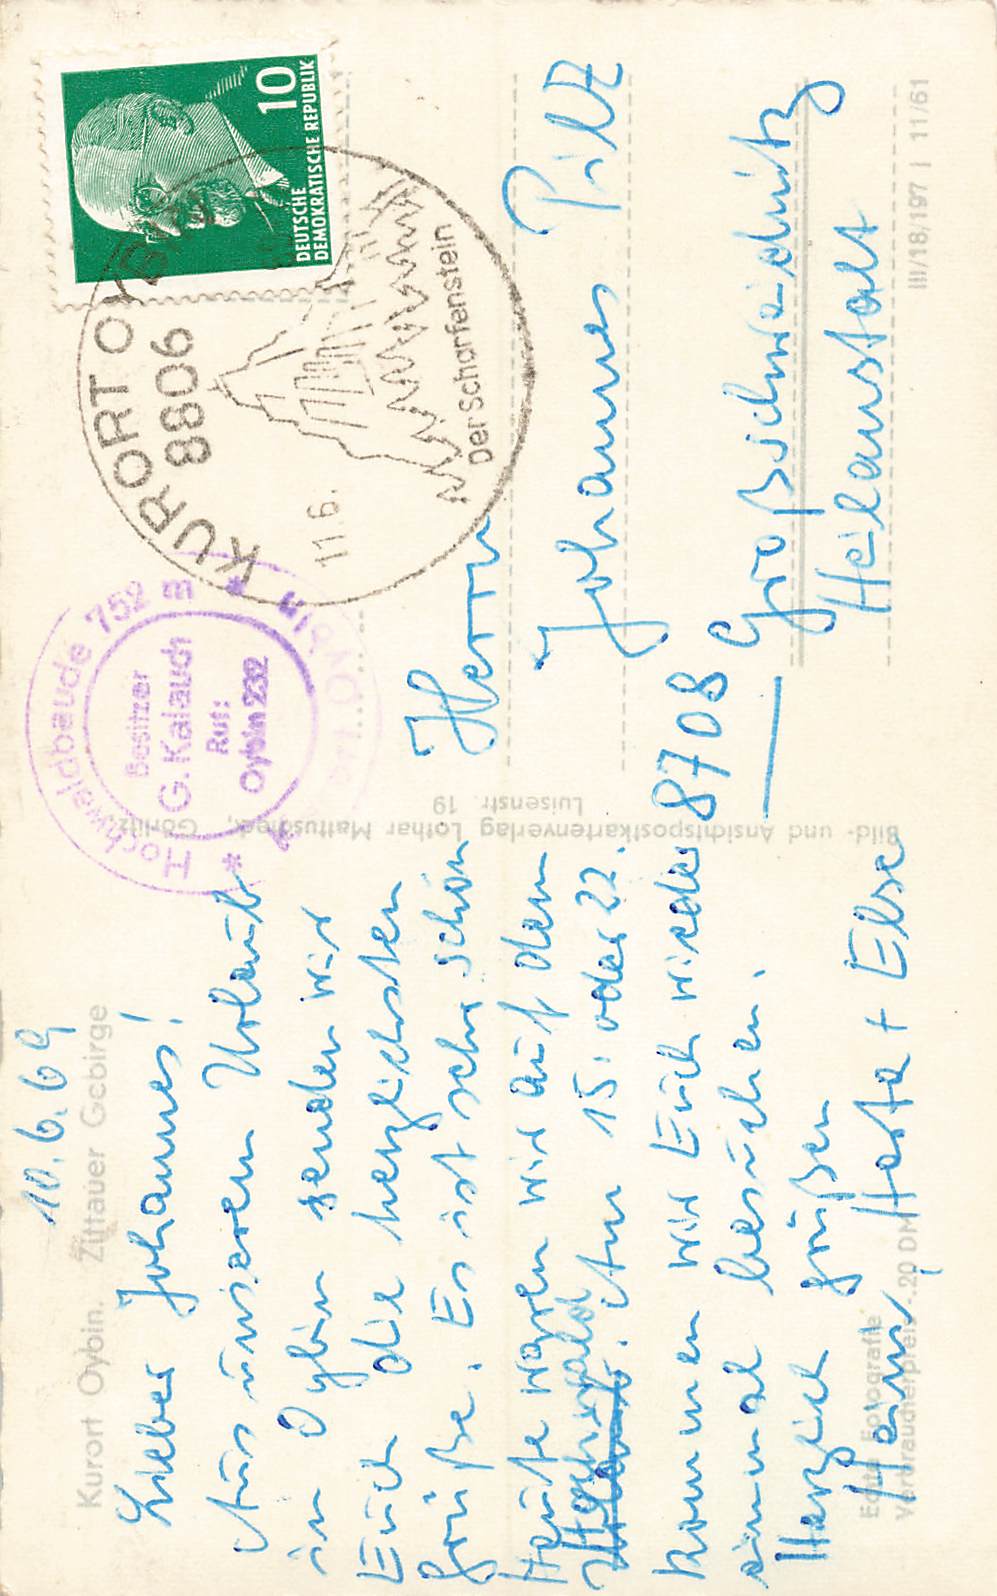 Kurort Oybin. Zittauer Gebirge
10.6.69
Lieber Johannes!
Aus unseren Urlaub
in Oybin senden wir
Euch die herzlichsten
Grüße. Es ist sehr schön
Heute waren wir auf dem
Hochwald. Am 15. oder 22.
kommen wir Euch wieder
einmal besuchen.
Herzlich grüßen
Heinz, Herta + Else
Echte Fotografie
Verbraucherpreis -.20 DM
Bild- und Ansichtspostkartenverlag Lothar Mattuscheck, Görlitz
Luisenstr. 19
Hochwaldbaude 752 m
Besitzer
G. Kalauch
Ruf:
Oybin 232
KURORT OYBIN
8806
11.6.
Der Scharfenstein
10
DEUTSCHE
DEMOKRATISCHE REPUBLIK
Herrn
Johannes Pilz
8708 Großschweidnitz
Heilanstalt
III/18/197 | 11/61